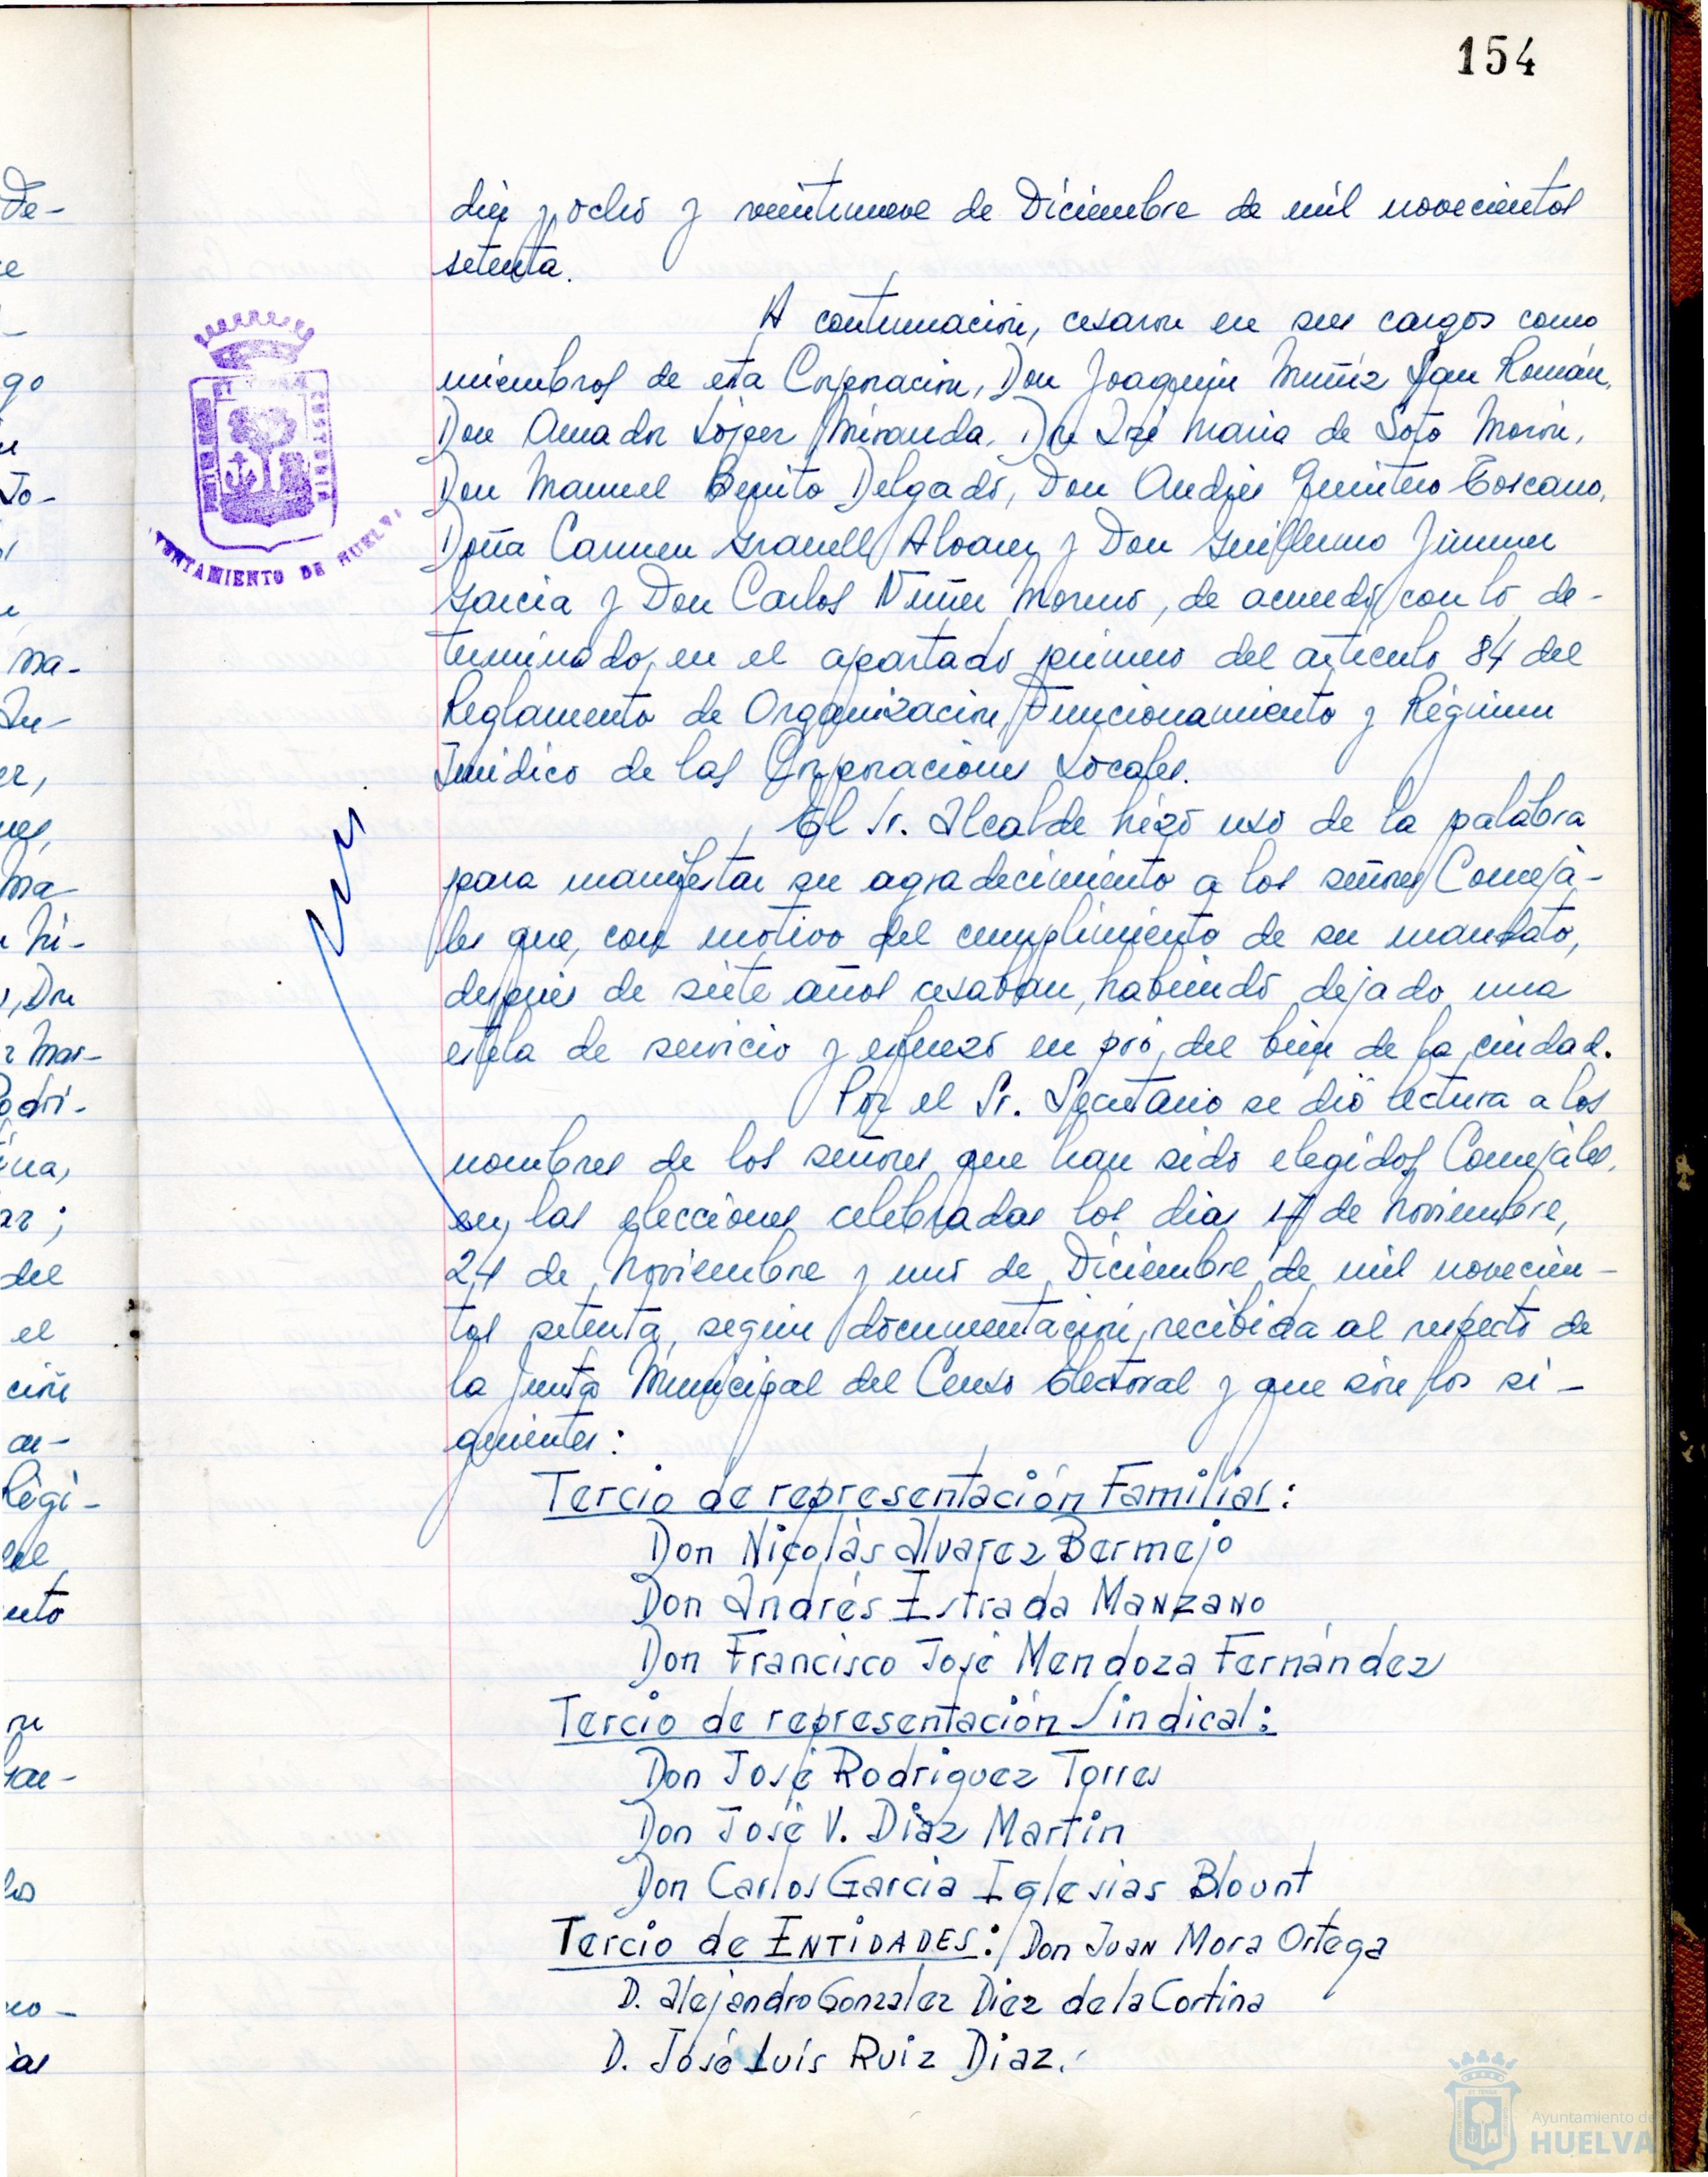 154
diez y ocho y veintinueve de Diciembre de mil novecientos
setenta.
A continuación, cesaron en sus cargos como
miembros de esta Corporación, Don Joaquin Muñiz San Román,
Don Amador López Miranda, Don José Maria de Soto Morón,
Don Manuel Benito Delgado, Don Andrés Quintero Toscano,
Doña Carmen Granell Alvarez y Don Guillermo Jimenez
Garcia y Don Carlos Nuñez Moreno, de acuerdo con lo de-
terminado en el apartado primero del articulo 84 del
Reglamento de Organización, Funcionamiento y Régimen
Juridico de las Corporaciones Locales.
El Sr. Alcalde hizo uso de la palabra
para manifestar su agradecimiento a los señores Conceja-
les que, con motivo del cumplimiento de su mandato,
después de siete años cesaban, habiendo dejado una
estela de servicio y esfuerzo en pró del bien de la ciudad.
Por el Sr. Secretario se dió lectura a los
nombres de los señores que han sido elegidos Concejales,
en las elecciones celebradas los dias 17 de Noviembre,
24 de Noviembre y uno de Diciembre de mil novecien-
tos setenta, según documentación recibida al respecto de
la Junta Municipal del Censo Electoral y que son los si-
guientes:
Tercio de representación Familiar:
Don Nicolás Alvarez Bermejo
Don Andrés Estrada Manzano
Don Francisco José Mendoza Fernández
Tercio de representación Sindical:
Don José Rodriguez Torres
Don José V. Diaz Martin
Don Carlos Garcia Iglesias Blount
Tercio de ENTIDADES: Don Juan Mora Ortega
D. Alejandro Gonzalez Diez de la Cortina
D. José Luis Ruiz Diaz.
AYUNTAMIENTO DE HUELVA
Ayuntamiento de
HUELVA